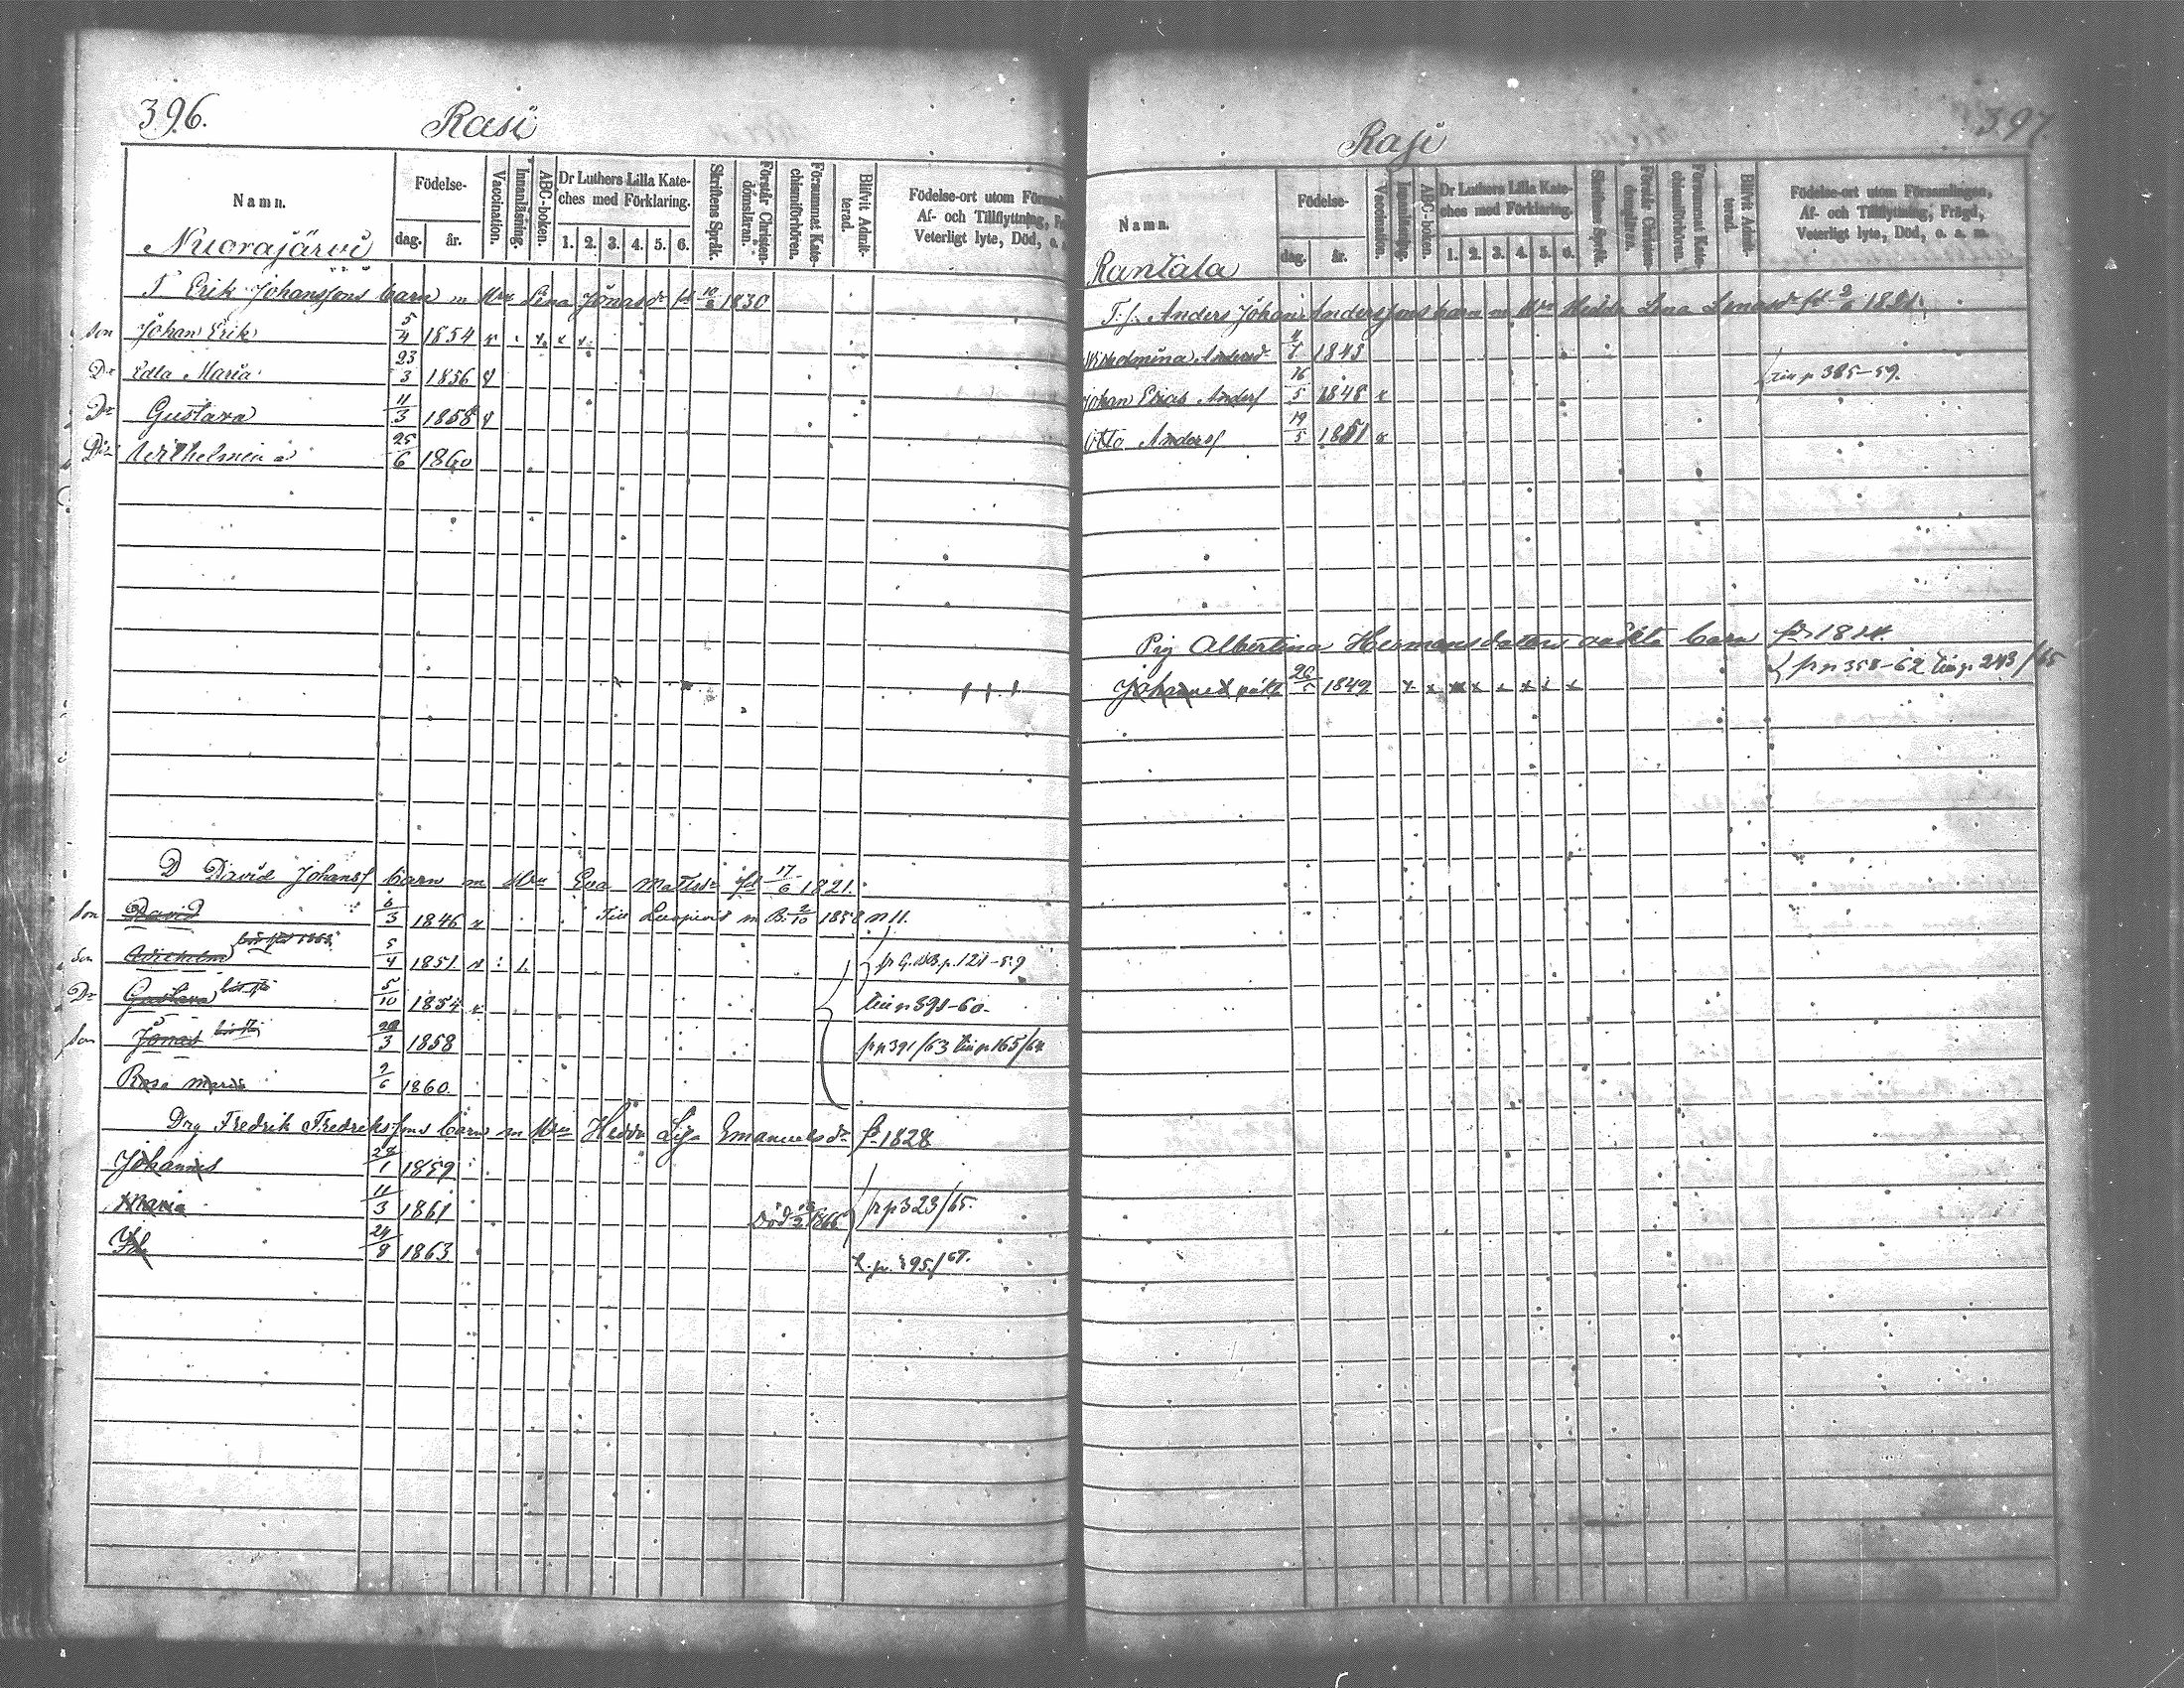 396.
Rasi
Namn.
Födelse-
dag. år.
Vaccination.
Innanläsning.
ABC-boken.
Dr Luthers Lilla Kate-
ches med Förklaring.
1. 2. 3. 4. 5. 6.
Skriftens Språk.
Förstår Christen-
domsläran.
Försummat Kate-
chismiförhören.
Blifvit Admit-
terad.
Födelse-ort utom Försam
Af- och Tillflyttning, Fr
Veterligt lyte, Död, o. a
Nuorajärvi
T Erik Johanssons barn m Hru Lina Jonasdr fd 10/8 1830
Son Johan Erik 5/4 1854
Dr Edla Maria 23/3 1856
Dr Gustava 11/3 1858
Dr Wilhelmina 25/6 1860
D David Johanss barn m Hru Eva Mattsdr fd 17/6 1821.
Son David 6/3 1846 Till m B. 2/10 1858 n 11.
Son Wilhelm 5/4 1851 fr G. BB. p. 121-59
Dr Gustava 5/10 1854 till p 391-60.
Son Jonas 20/3 1858 fr p 391/63 till p 165/64
Rosa Maria 2/6 1860
Drg Fredrik Fredrikssons barn m Hru Hedda Lisa Emanuelsdr fd 1828
Johannes 28/1 1859
Maria 11/3 1861 Död 1866 fr p 323/65.
24/8 1863 395/67.
397.
Rasi
Namn.
Födelse-
dag. år.
Vaccination.
Innanläsning.
ABC-boken.
Dr Luthers Lilla Kate-
ches med Förklaring.
1. 2. 3. 4. 5. 6.
Skriftens Språk.
Förstår Christen-
domsläran.
Försummat Kate-
chismiförhören.
Blifvit Admit-
terad.
Födelse-ort utom Församlingen,
Af- och Tillflyttning, Frägd,
Veterligt lyte, Död, o. a. m.
Rantala
T.f. Anders Johan Anderssons barn m Hru Hedda Lena fd 2/6 1821.
Wilhelmina Andersdr 1845
Johan Elias Anders 16/5 1848 till p 385-59.
Otto Anders 19/5 1851
Pig Albertina Hermansdotters oäkta barn fdr 1824.
Johannes oäkta 26/5 1849 fr p 358-62 till p 243/65